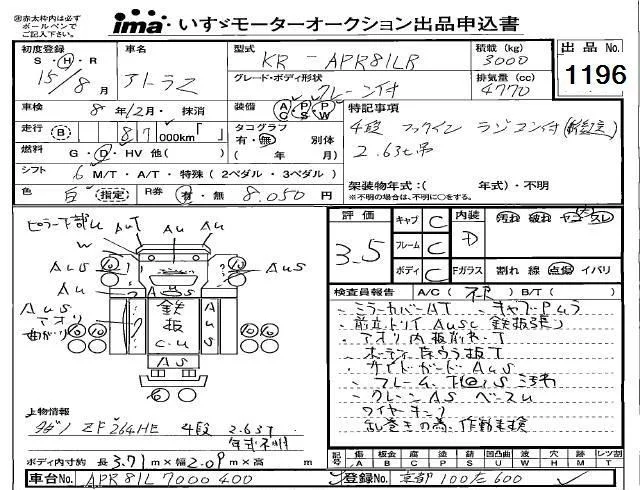 ※赤太枠内は必ず
ボールペンで
ご記入下さい。
ima いすゞモーターオークション出品申込書
初度登録
S・H・R
15/8月
車名
アトラス
型式
KR-APR81LR
積載(kg)
3000
出品No.
1196
グレード・ボディ形状
クレーン付
排気量(cc)
4770
車検
8年12月・抹消
装備
AC・PS・PW
特記事項
4段 フックイン ラジコン付
2.63t吊
走行
B
87,000km「 」
タコグラフ
有・無 別体
( 年 月)
燃料
G・D・HV 他( )
シフト
6M/T・A/T・特殊(2ペダル・3ペダル)
架装物年式:( 年式)・不明
※不明の場合は、不明に○をする。
色
白(指定)
R券
有・無 8,050円
ピラー下部U
AuT
Au
Au
W
AuS
AuS
Au
AuS
アオリ
曲がり
鉄板
C.U
AuS
AS
評価
3.5
キャブ C
フレーム C
ボディ C
内装
D
汚れ 破れ ヤニ スレ
Fガラス 割れ 線 点傷 イバリ
検査員報告 A/C( ) B/T( )
・ミラーカバーAT
・キャブ
・前立、トリイ AuSC 鉄板張り
・アオリ内板
・ボディ
・サイドガード AuS
・フレーム
・クレーン AS ベースU
ワイヤーキンク
乱巻きの為、作動未検
上物情報
タダノ ZF264HE 4段 2.63T
年式不明
ボディ内寸 約 長 3.71m×幅2.09m×高 m
記号
傷 板金 腐 塗 錆 凹凸曲 波 穴 跡 補修 レンズ割
A B C P S U W H X M T
車台No.
APR81L7000400
登録No.
京都100た600